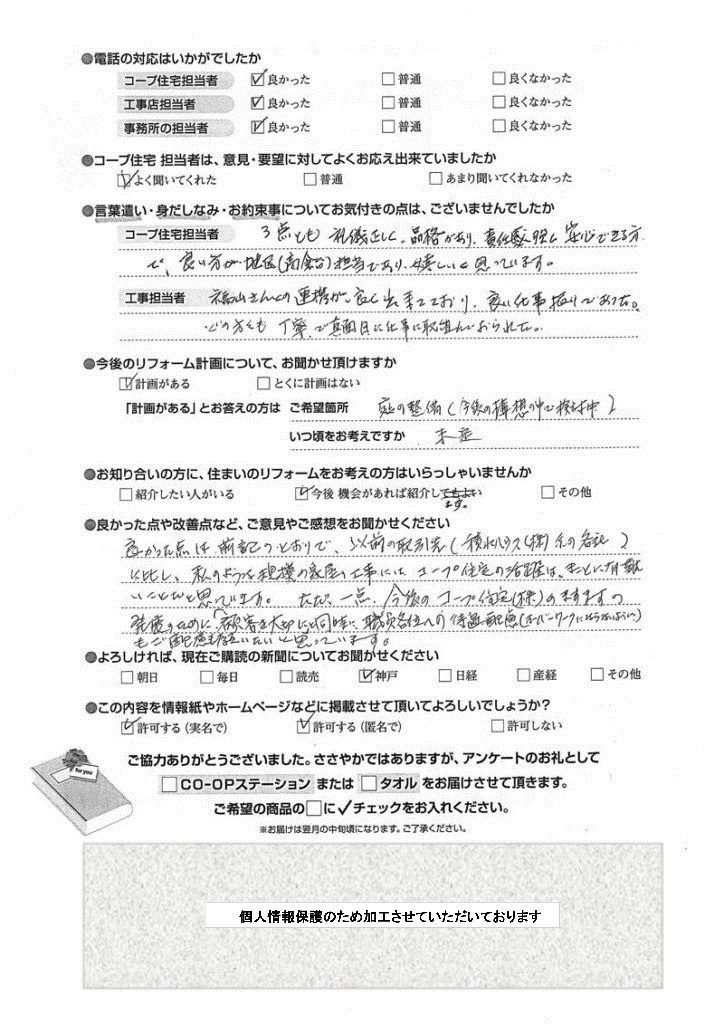 ●電話の対応はいかがでしたか
コープ住宅担当者 ☑良かった □普通 □良くなかった
工事店担当者 ☑良かった □普通 □良くなかった
事務所の担当者 ☑良かった □普通 □良くなかった
●コープ住宅 担当者は、意見・要望に対してよくお応え出来ていましたか
☑よく聞いてくれた □普通 □あまり聞いてくれなかった
●言葉遣い・身だしなみ・お約束事についてお気付きの点は、ございませんでしたか
コープ住宅担当者 3点とも 礼儀正しく。品格があり、責任感強く 安心できる方
で、良い方が 地区()担当であり、嬉しいと思っています。
工事担当者 福山さんとの連携が良く出来ており、良い仕事振りであった。
どの方々も 丁寧で真面目に仕事に取組んでおられた。
●今後のリフォーム計画について、お聞かせ頂けますか
☑計画がある □とくに計画はない
「計画がある」とお答えの方は ご希望箇所 庭の整備(今後の構想の中で検討中)
いつ頃をお考えですか 未定
●お知り合いの方に、住まいのリフォームをお考えの方はいらっしゃいませんか
□紹介したい人がいる ☑今後 機会があれば紹介してもよい □その他
ます。
●良かった点や改善点など、ご意見やご感想をお聞かせください
良かった点は 前記のとおりで、以前の取引先(積水ハウス(株)系の各社)
に比し、私のような規模の家屋の工事には コープ住宅の活躍は、まことに有難
いことだと思っています。 ただ、一点、今後の コープ住宅(株)のますますの
発展のために、顧客を大切にと同時に、職員各位への 待遇配慮(オーバーワークにならないように)
もご配慮を願いたいと思っています。
●よろしければ、現在ご購読の新聞についてお聞かせください
□朝日 □毎日 □読売 ☑神戸 □日経 □産経 □その他
●この内容を情報紙やホームページなどに掲載させて頂いてよろしいでしょうか?
☑許可する(実名で) ☑許可する(匿名で) □許可しない
for you
ご協力ありがとうございました。ささやかではありますが、アンケートのお礼として
□CO-OPステーション または □タオル をお届けさせて頂きます。
ご希望の商品の□に✓チェックをお入れください。
※お届けは翌月の中旬頃になります。ご了承ください。
個人情報保護のため加工させていただいております